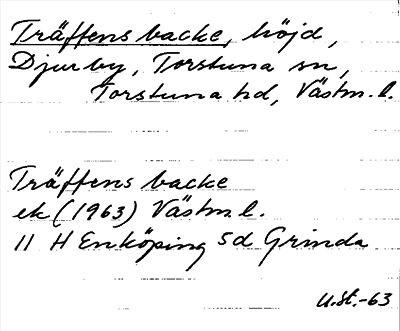 Träffens backe, höjd,
Djurby, Torstuna sn,
Torstuna hd, Västm. l.
Träffens backe
ek (1963) Västm l.
11 H Enköping Sd Grinda
U.St.-63